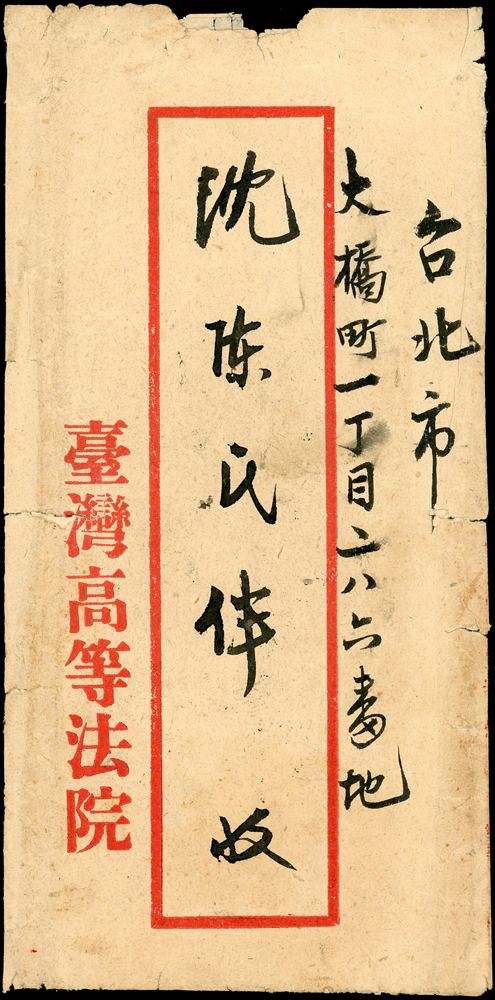 台北市
大橋町一丁目二八六番地
沈陈氏伴收
臺灣高等法院